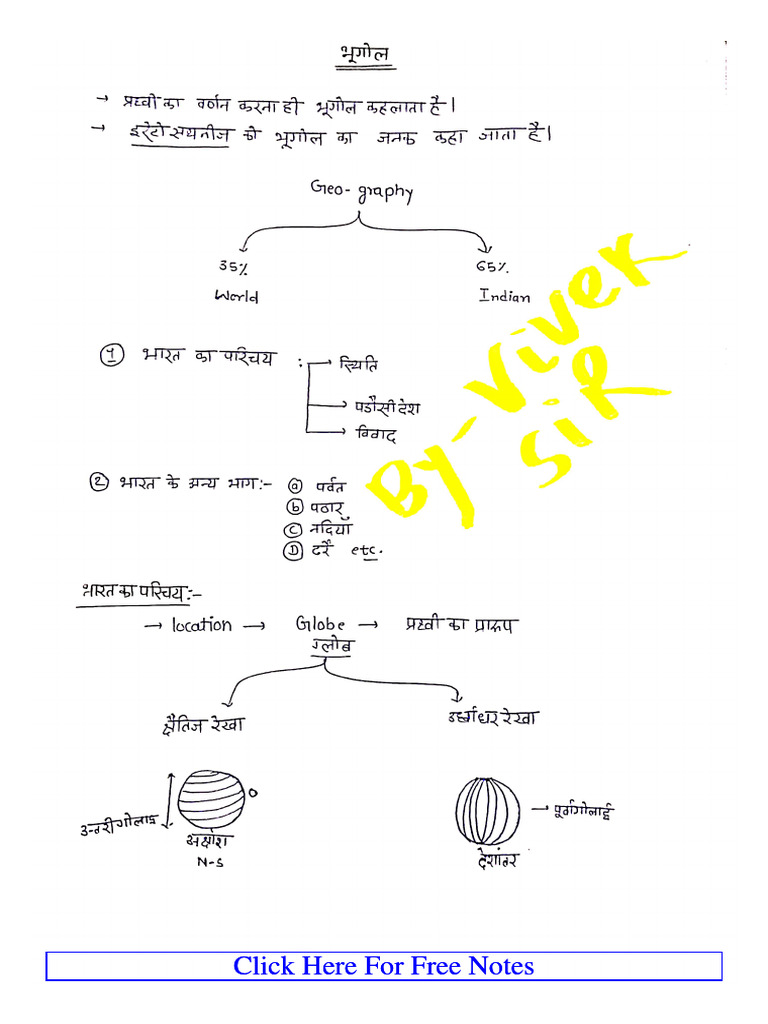 भूगोल
→ प्रथ्वी का वर्णन करना ही भूगोल कहलाता है।
→ इरेटोसथनीज को भूगोल का जनक कहा जाता है।
Geo-graphy
35% 65%
World Indian
① भारत का परिचय :→ स्थिति
→ पडौसी देश
→ विवाद
② भारत के अन्य भाग:- ⓐ पर्वत
ⓑ पठार
ⓒ नदियाँ
Ⓓ दर्रै etc.
By-Vivek
SiR
भारत का परिचय:-
→ location → Globe → प्रथ्वी का प्रारूप
ग्लोब
क्षैतिज रेखा उर्ध्वाधर रेखा
उत्तरी गोलार्द्ध 0 → पूर्वी गोलार्द्ध
अक्षांश देशांतर
N-S
Click Here For Free Notes